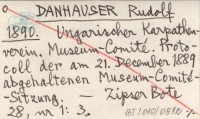 DANHAUSER Rudolf
1890. Ungarischer Karpathen-
verein. Museum-Comité. Proto-
coll der am 21. December 1889
abgehaltenen Museum-Comité-
-Sitzung. — Zipser Bote
28, nr 1: 3.